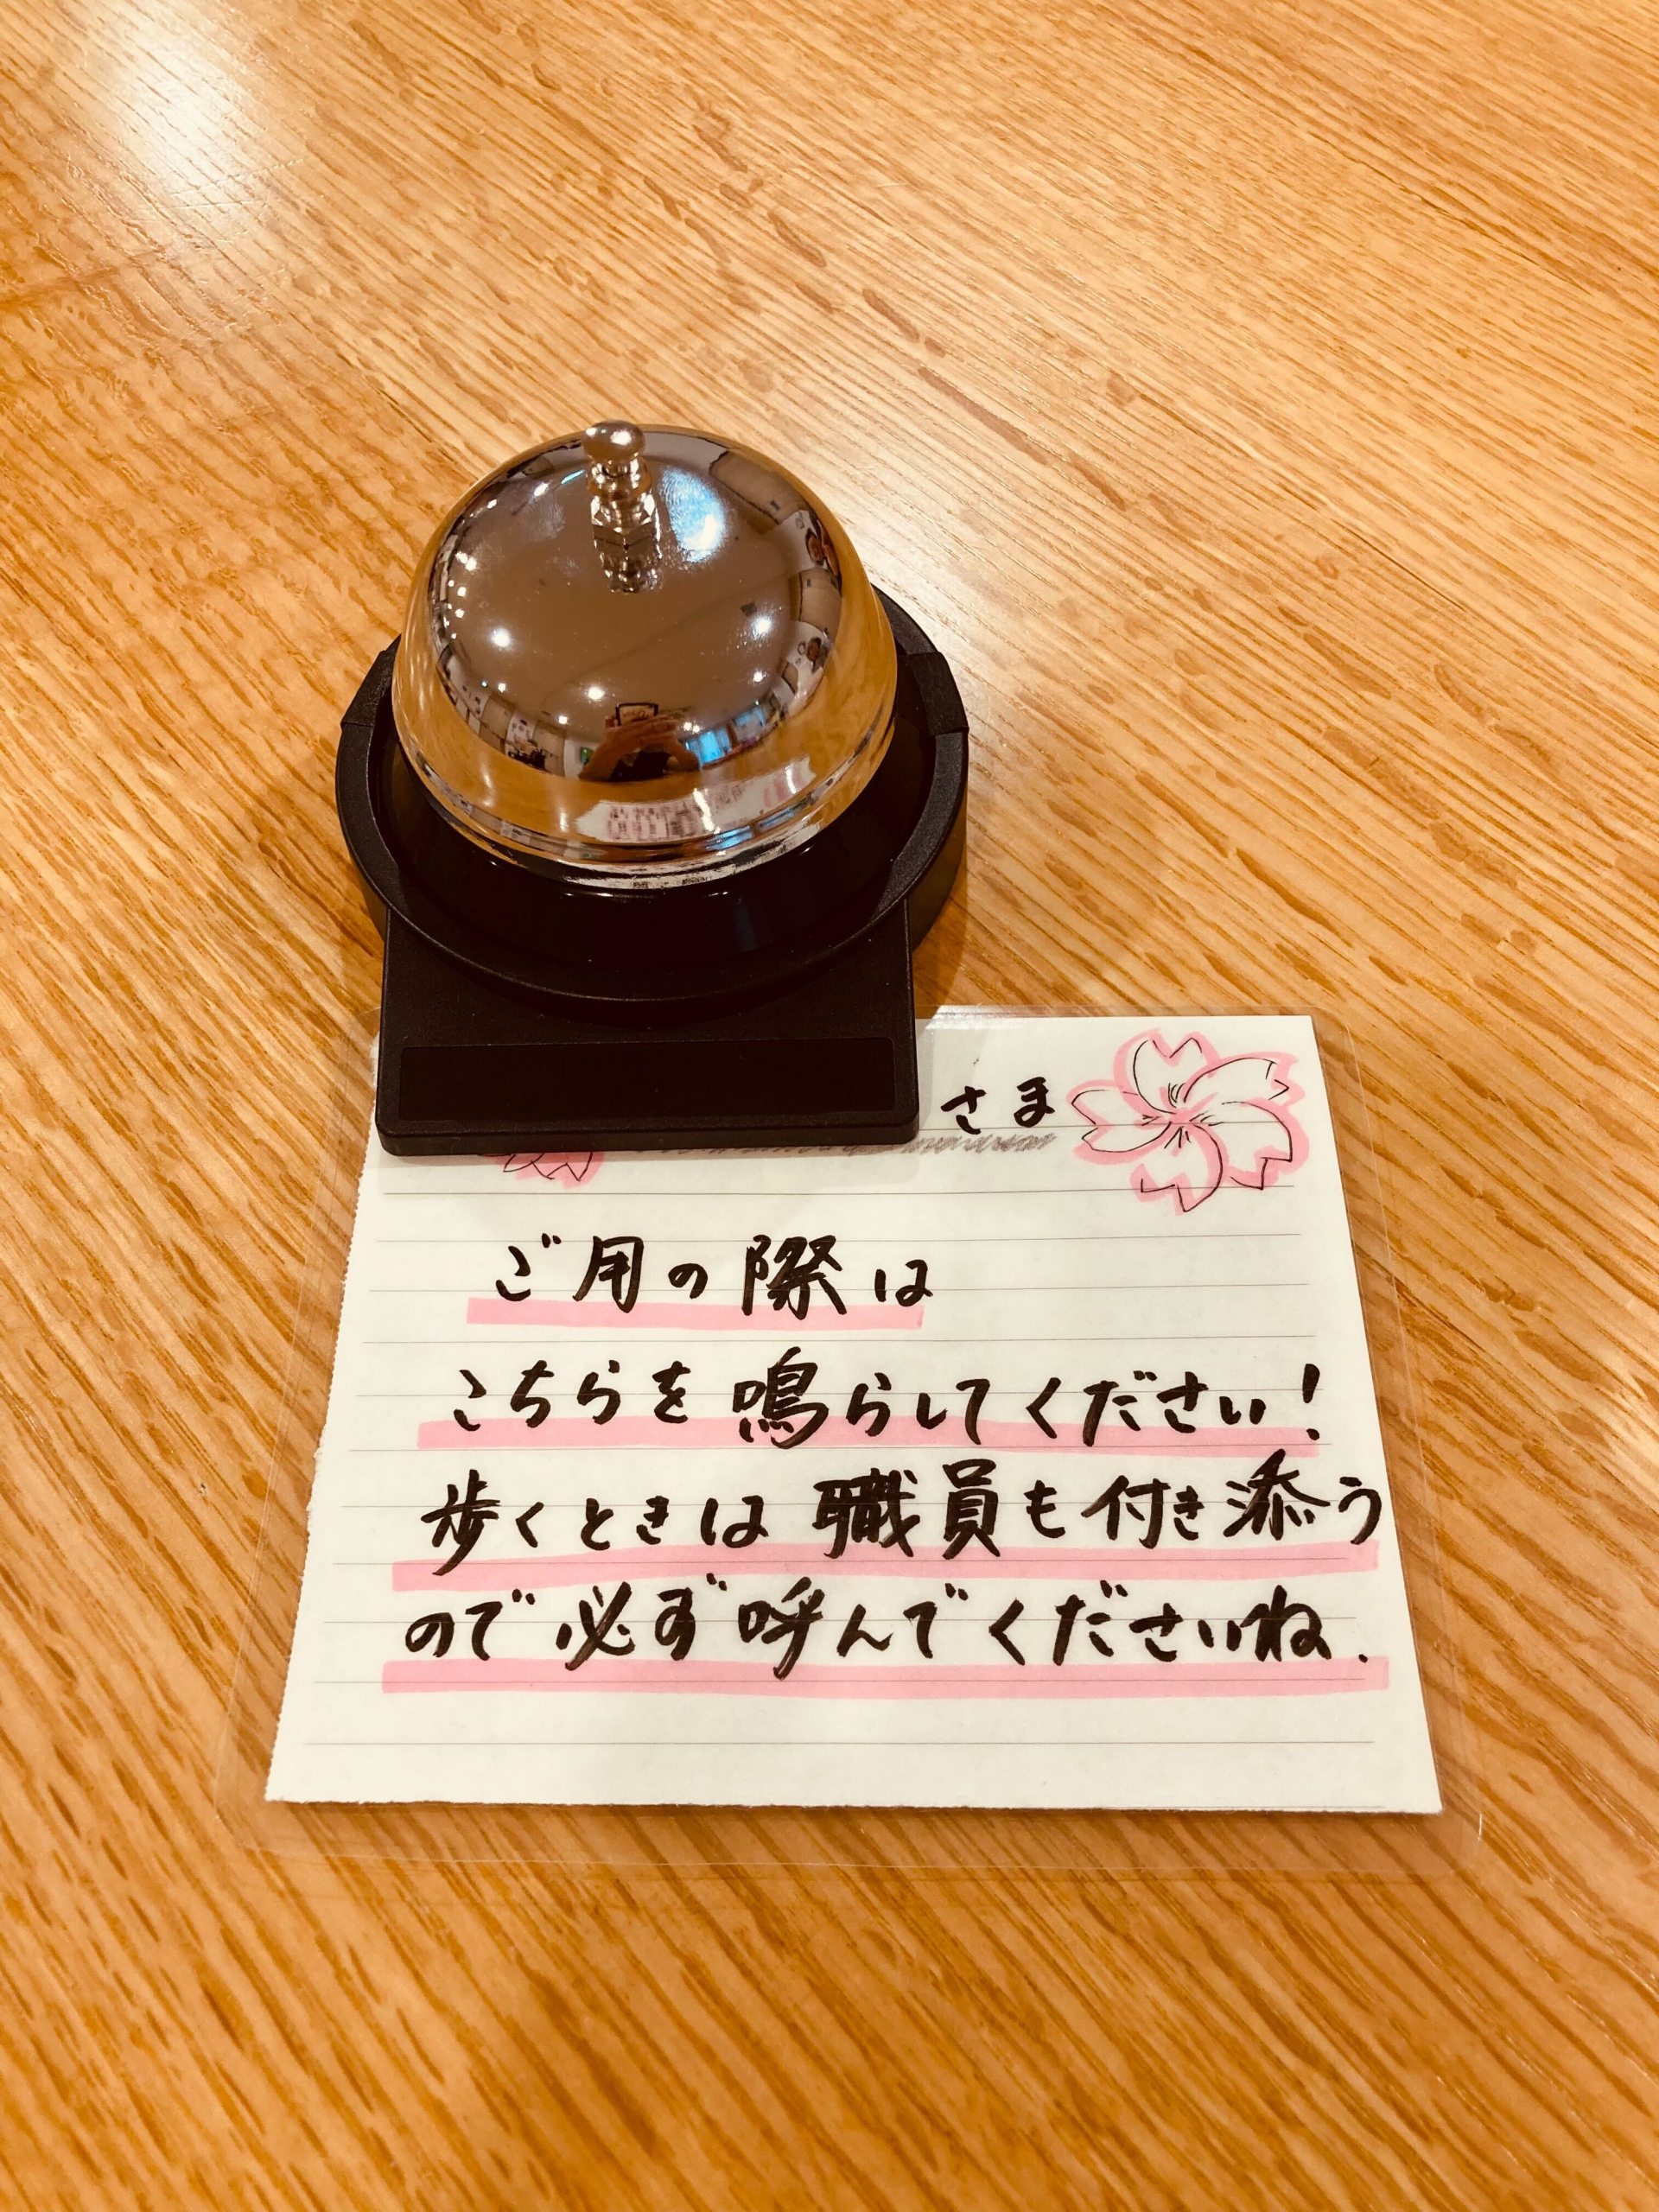 さま
ご用の際は
こちらを鳴らしてください!
歩くときは職員も付き添う
ので必ず呼んでくださいね.